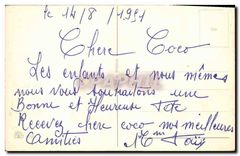 le 14/8/1991
Chere Coco
Les enfants et nous mêmes
nous vous souhaitons une
Bonne et Heureuse Fête
Recevez chère coco nos meilleures
amitiés Mme